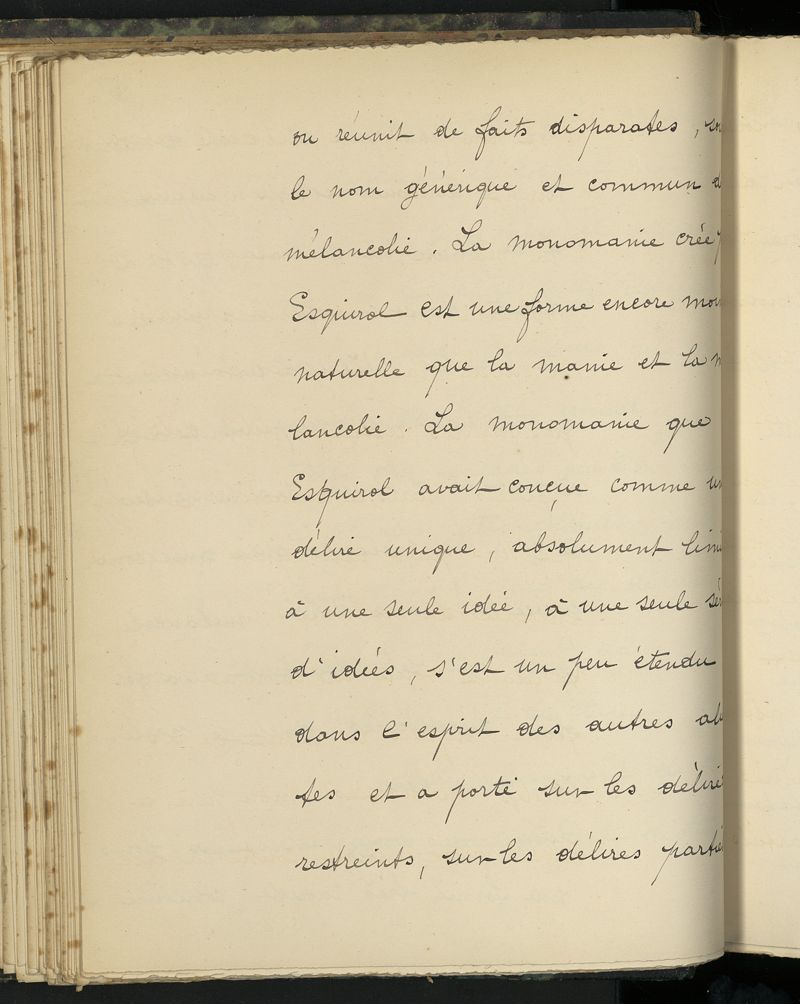 on réunit de faits disparates,
le nom générique et commun
mélancolie. La monomanie créée
Esquirol est une forme encore
naturelle que la manie et la
lancolie. La monomanie que
Esquirol avait conçue comme
délire unique, absolument
à une seule idée, à une seule
d'idées, s'est un peu étendu
dans l'esprit des autres
tes et a porté sur les
restreints, sur les délires